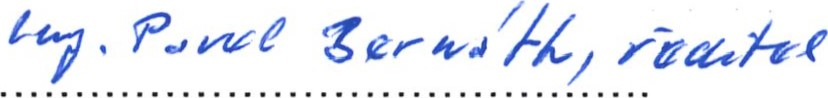 Ing. Pavel Bernáth, riaditeľ